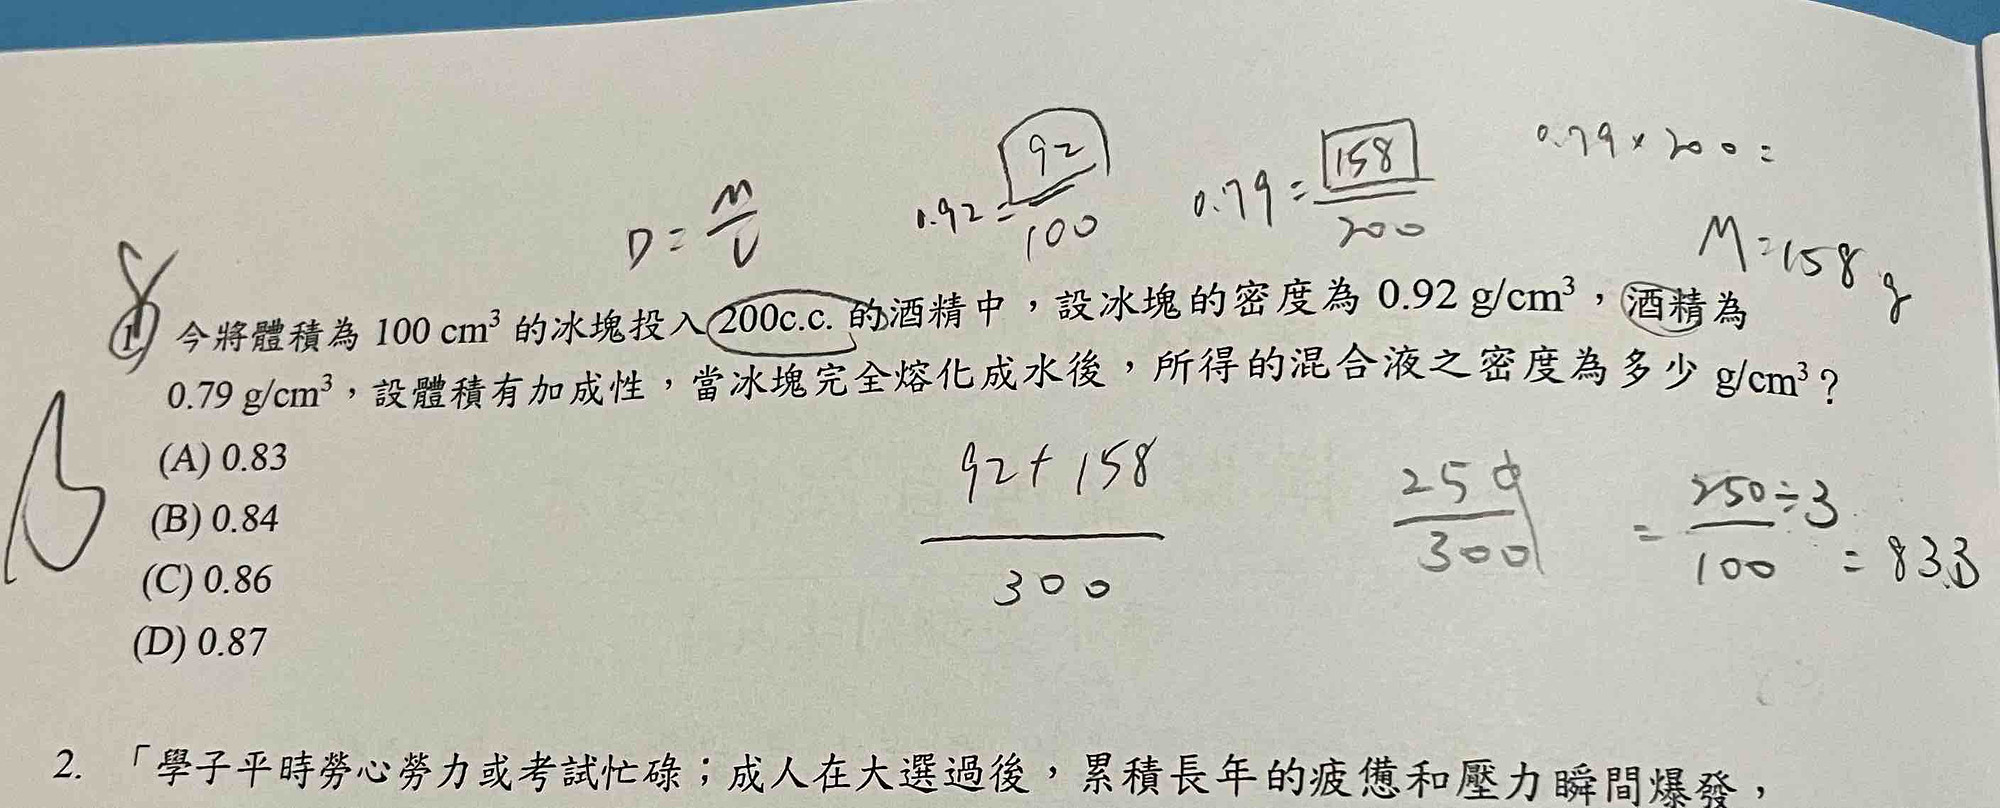 0.92 = 92/100 0.79 = 158/200 0.79 × 200 =
D = M/V M = 158 g
1. 今將體積為 100 cm³ 的冰塊投入200c.c. 的酒精中，設冰塊的密度為 0.92 g/cm³，酒精為
0.79 g/cm³，設體積有加成性，當冰塊完全熔化成水後，所得的混合液之密度為多少 g/cm³？
(A) 0.83
(B) 0.84
(C) 0.86
(D) 0.87
92 + 158 / 300 250 / 300 = 250÷3 / 100 = 83.3
2. 「學子平時勞心勞力或考試忙碌；成人在大選過後，累積長年的疲憊和壓力瞬間爆發，